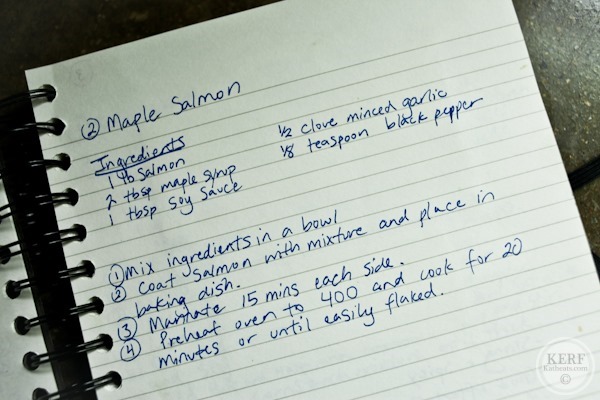 ② Maple Salmon
Ingredients
1 lb Salmon
2 tbsp maple syrup
1 tbsp Soy Sauce
1/2 clove minced garlic
1/8 teaspoon black pepper
① Mix ingredients in a bowl
② Coat Salmon with mixture and place in
baking dish.
③ Marinate 15 mins each side.
④ Preheat oven to 400 and cook for 20
minutes or until easily flaked.
KERF
Katheats.com
©